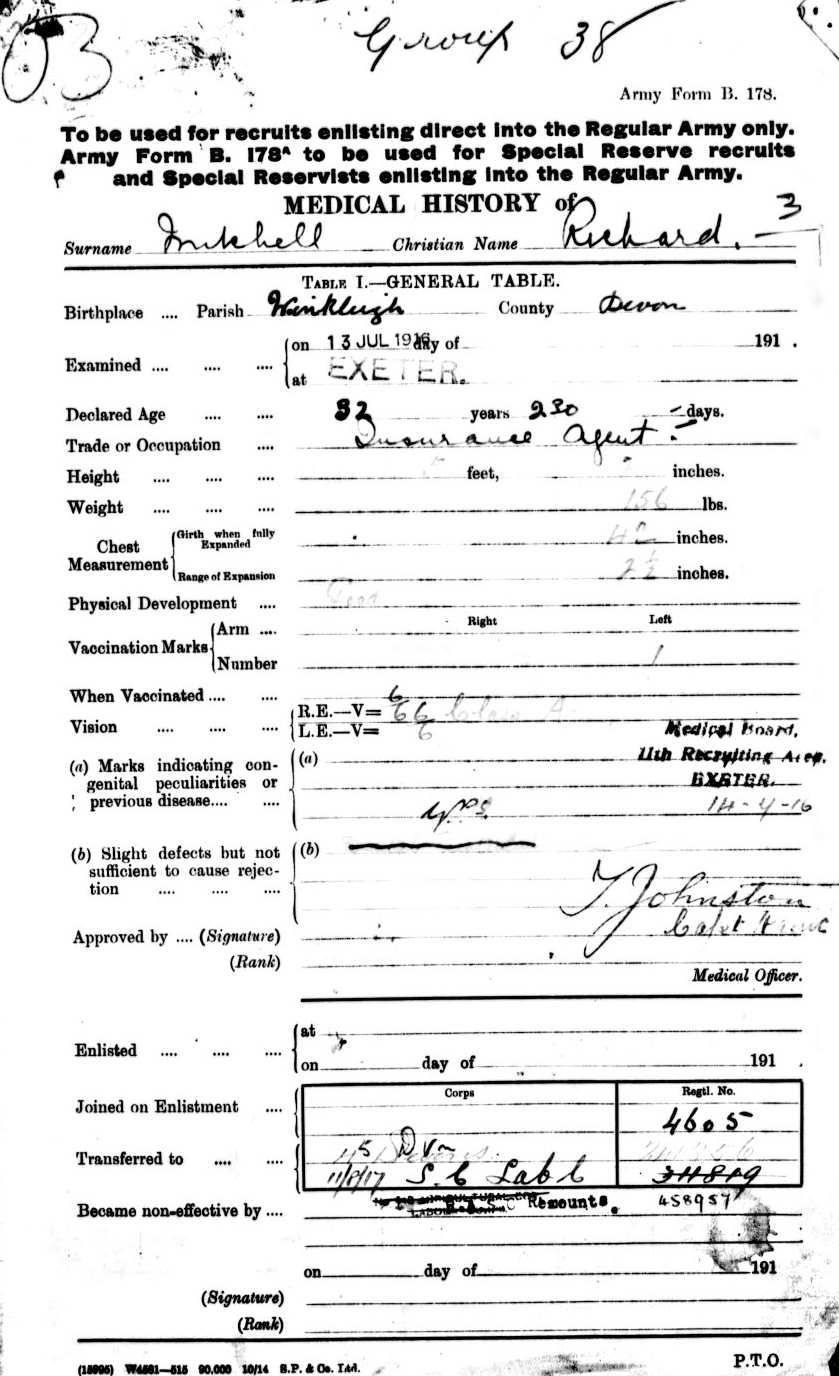 03
Group 38
Army Form B. 178.
To be used for recruits enlisting direct into the Regular Army only.
Army Form B. 178A to be used for Special Reserve recruits
and Special Reservists enlisting into the Regular Army.
MEDICAL HISTORY of
3
Surname Mitchell Christian Name Richard.
TABLE I.—GENERAL TABLE.
Birthplace .... Parish Winkleigh County Devon
Examined .... .... .... on 13 JUL 1916 day of 191 .
at EXETER.
Declared Age .... .... 32 years 230 days.
Trade or Occupation .... Insurance Agent.
Height .... .... .... 5 feet, inches.
Weight .... .... .... 156 lbs.
Chest Measurement Girth when fully Expanded inches.
Range of Expansion 2½ inches.
Physical Development ....
Right Left
Vaccination Marks Arm ....
Number 1
When Vaccinated .... ....
Vision .... .... .... R.E.—V= 6/6
L.E.—V= 6/6
Medical Board,
11th Recruiting Area,
EXETER.
14-7-16
(a) Marks indicating con-
genital peculiarities or
previous disease.... .... (a)
(b) Slight defects but not
sufficient to cause rejec-
tion .... .... .... (b)
T. Johnston
Capt
Approved by .... (Signature)
(Rank)
Medical Officer.
Enlisted .... .... .... at
on day of 191 .
Corps Regtl. No.
Joined on Enlistment .... 4605
Transferred to .... .... Dvn
11/8/17 S. C Lab C 311819
Became non-effective by .... Remounts. 458957
on day of 191
(Signature)
(Rank)
P.T.O.
(15995) W4581—515 90,000 10/14 S.P. & Co. Ltd.